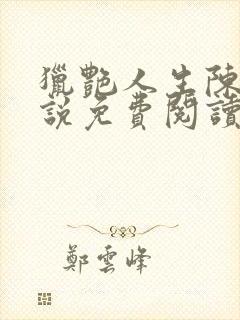 獵艷人生陳
說免費閱讀
鄭雲峰